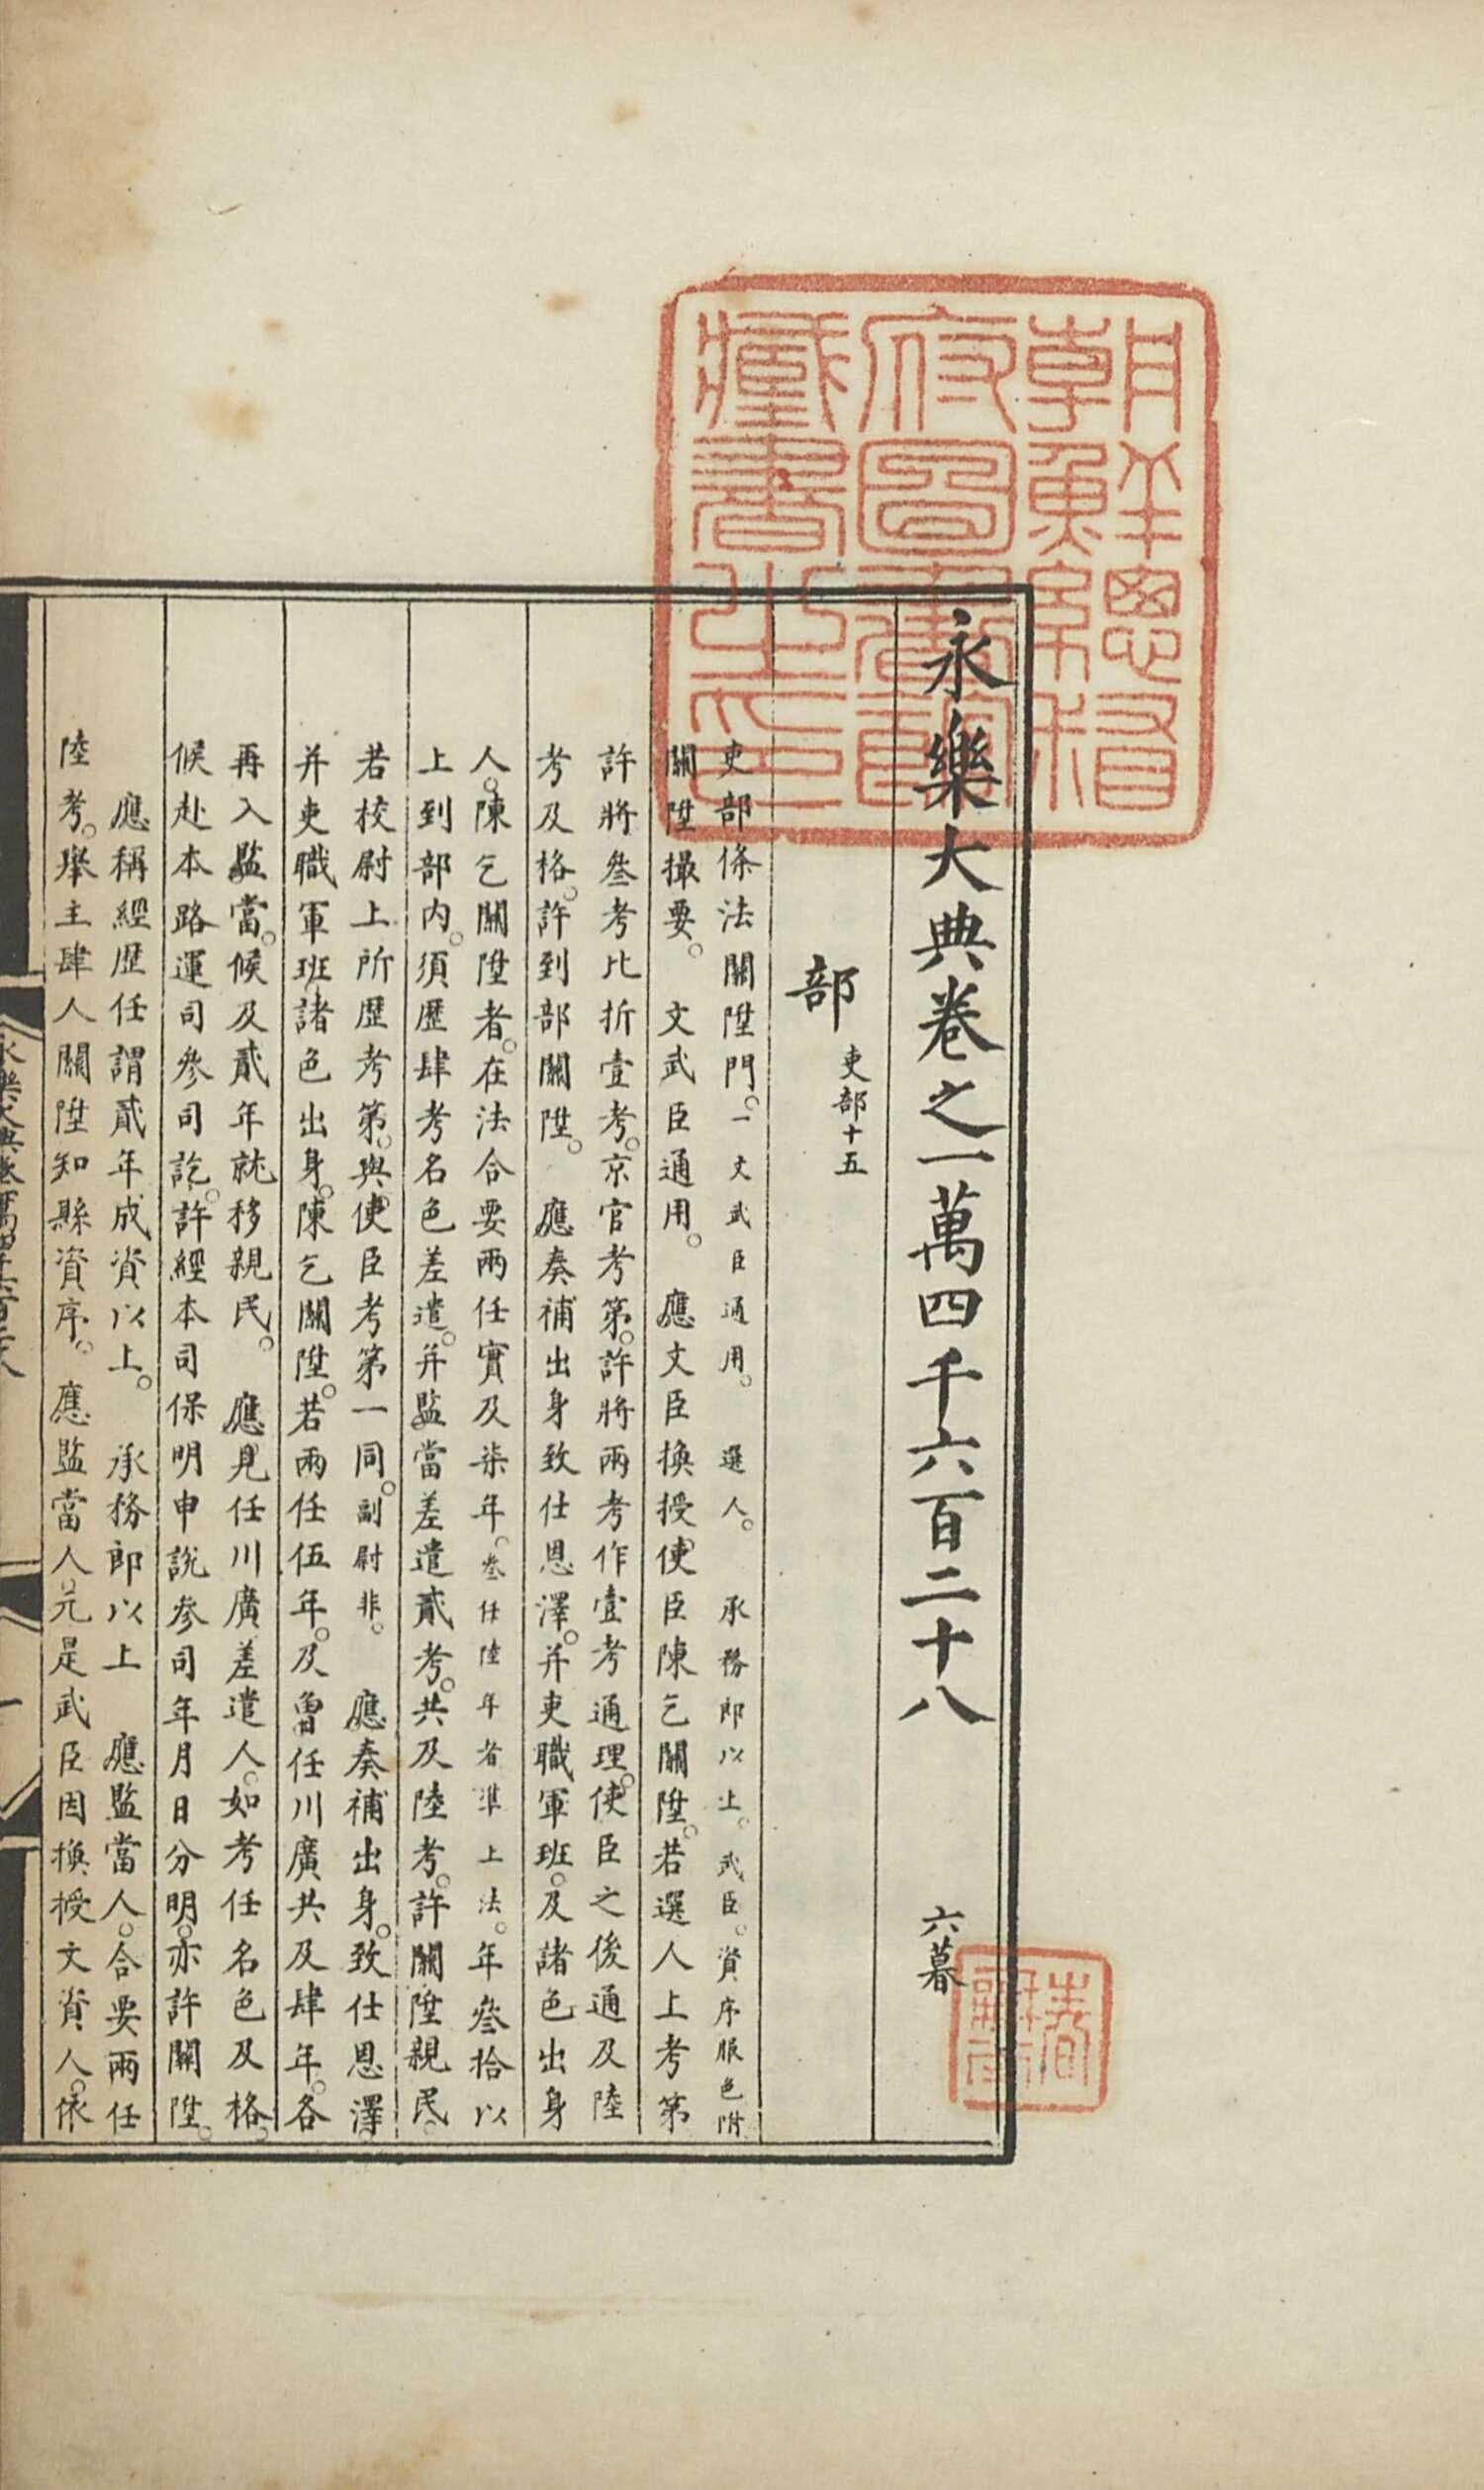 永樂大典卷之一萬四千六百二十八
六暮
部
吏部十五
吏部條法關陞門。一文武臣通用。 選人。 承務郎以上。武臣。資序服色附
關陞撮要。 文武臣通用。 應文臣換授使臣陳乞關陞。若選人上考第
許將叁考比折壹考。京官考第。許將兩考作壹考通理。使臣之後通及陸
考及格。許到部關陞。 應奏補出身致仕恩澤。并吏職軍班。及諸色出身
人。陳乞關陞者。在法合要兩任實及柒年。叁任陸年者準上法。年叁拾以
上到部內。須歷肆考名色差遣。并監當差遣貳考。共及陸考。許關陞親民。
若校尉上所歷考第。與使臣考第一同。副尉非。 應奏補出身。致仕恩澤
并吏職軍班諸色出身。陳乞關陞。若兩任伍年。及曾任川廣共及肆年。各
再入監當。候及貳年就移親民。 應見任川廣差遣人。如考任名色及格。
候赴本路運司參司訖。許經本司保明申說參司年月日分明。亦許關陞。
應稱經歷任謂貳年成資以上。 承務郎以上 應監當人。合要兩任
陸考。舉主肆人關陞知縣資序。 應監當人元是武臣因換授文資人。依
朝鮮總督
府圖書館
藏書之印